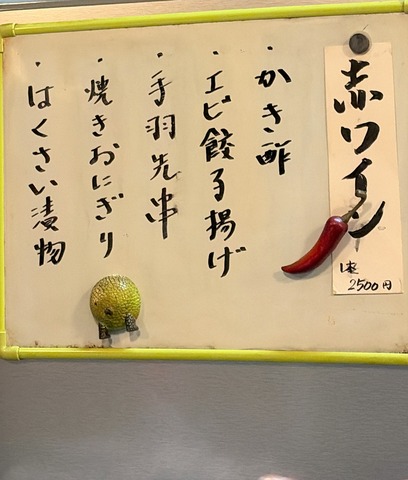 赤ワイン
1本
2500円
・かき酢
・エビ餃子揚げ
・手羽先串
・焼きおにぎり
・はくさい漬物